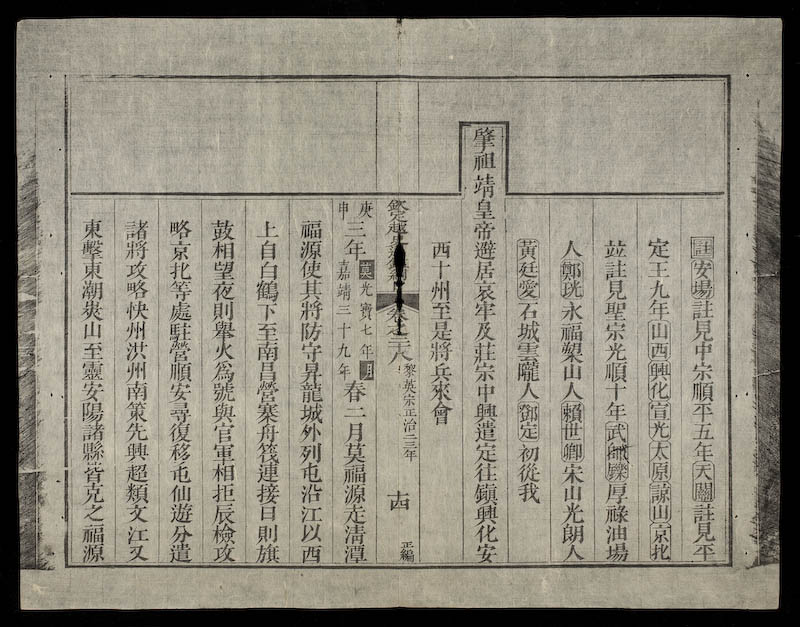 註安場註見中宗順平五年天關註見平
定王九年山西興化宣光太原諒山京北
竝註見聖宗光順十年武師鑠厚祿油場
人鄭珖永福槊山人賴世卿宋山光朗人
黃廷愛石城雲隴人鄧定初從我
肇祖靖皇帝避居哀牢及莊宗中興遣定往鎭興化安
西十州至是將兵來會
欽定越史通鑑綱目卷之二十八 黎英宗正治二三年 十四 正編
庚申三年莫光寶七年明嘉靖三十九年春二月莫福源走清潭
福源使其將防守昇龍城外列屯沿江以西
上自白鶴下至南昌營寨舟筏連接日則旗
鼓相望夜則舉火爲號與官軍相拒辰檢攻
略京北等處駐營順安尋復移屯仙遊分遣
諸將攻略快州洪州南策先興超類文江又
東擊東潮𡽫山至靈安陽諸縣皆克之福源